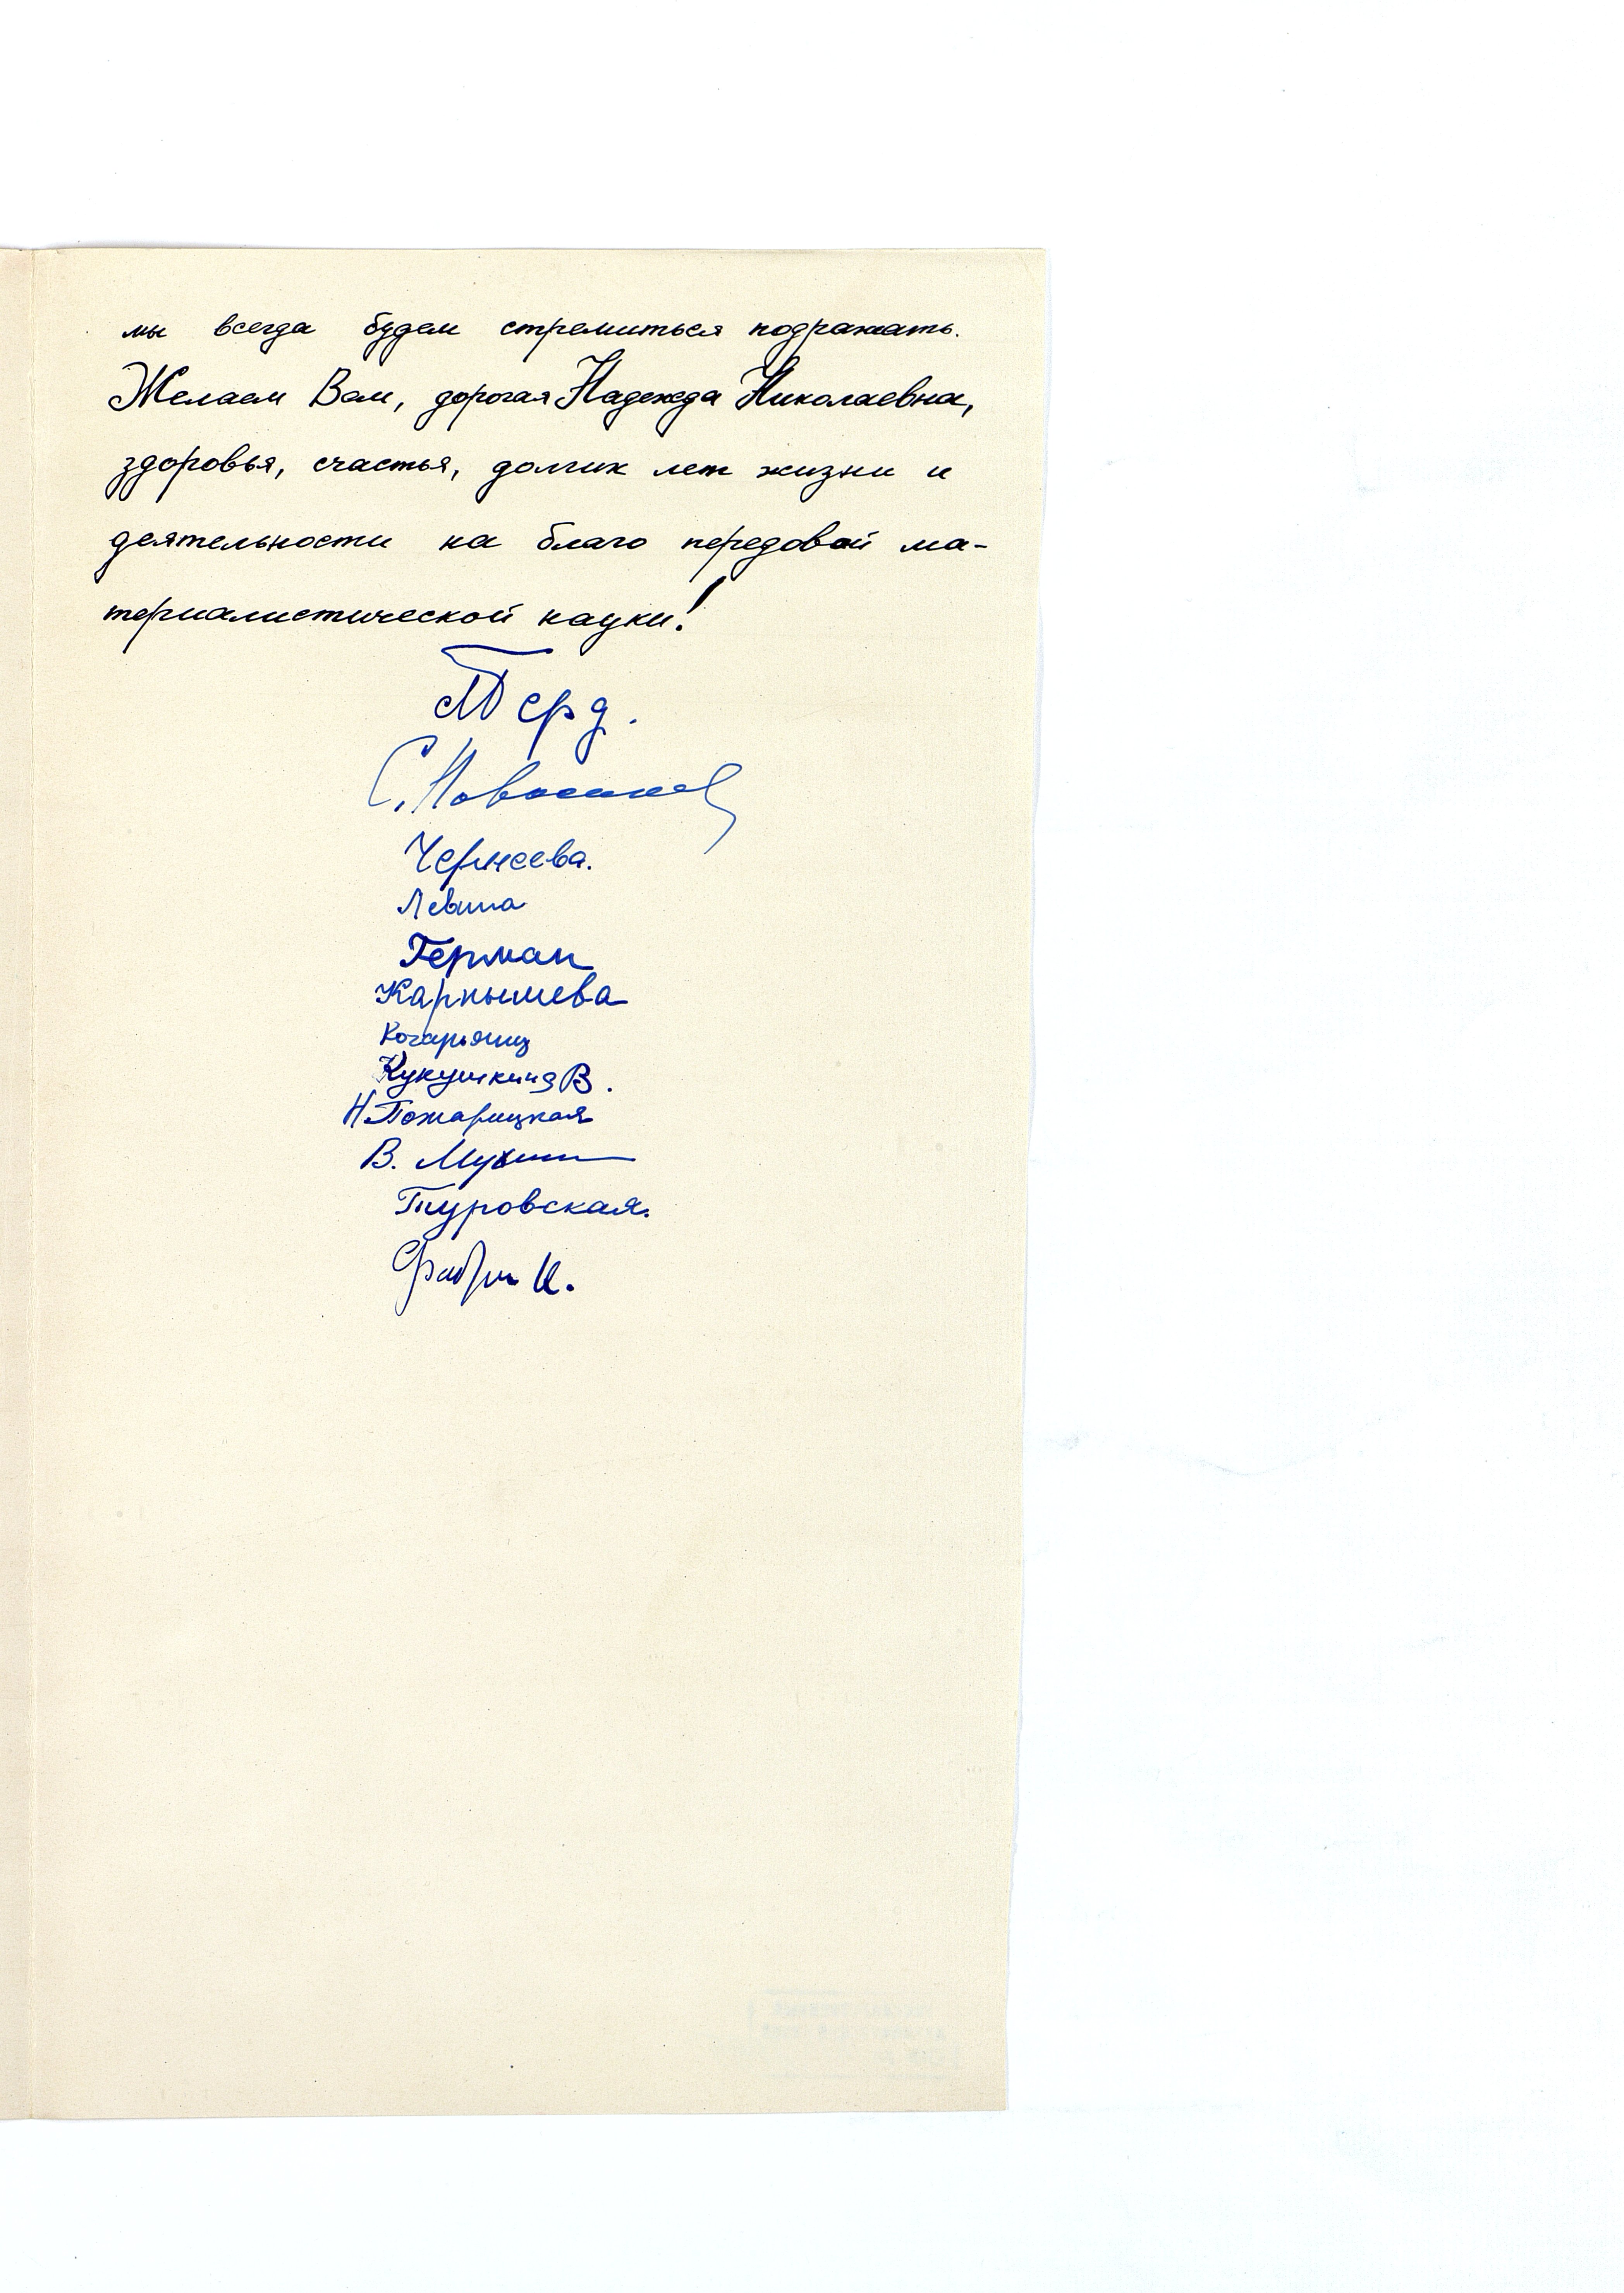 мы всегда будем стремиться подражать.
Желаем Вам, дорогая Надежда Николаевна,
здоровья, счастья, долгих лет жизни и
деятельности на благо передовой ма-
териалистической науки!
С.
Чернеева.
Левина
Герман
Карпышева
Кочарянц
Кукушкина В.
Н Пожарицкая
В. Мухин
Туровская.
Фабри К.